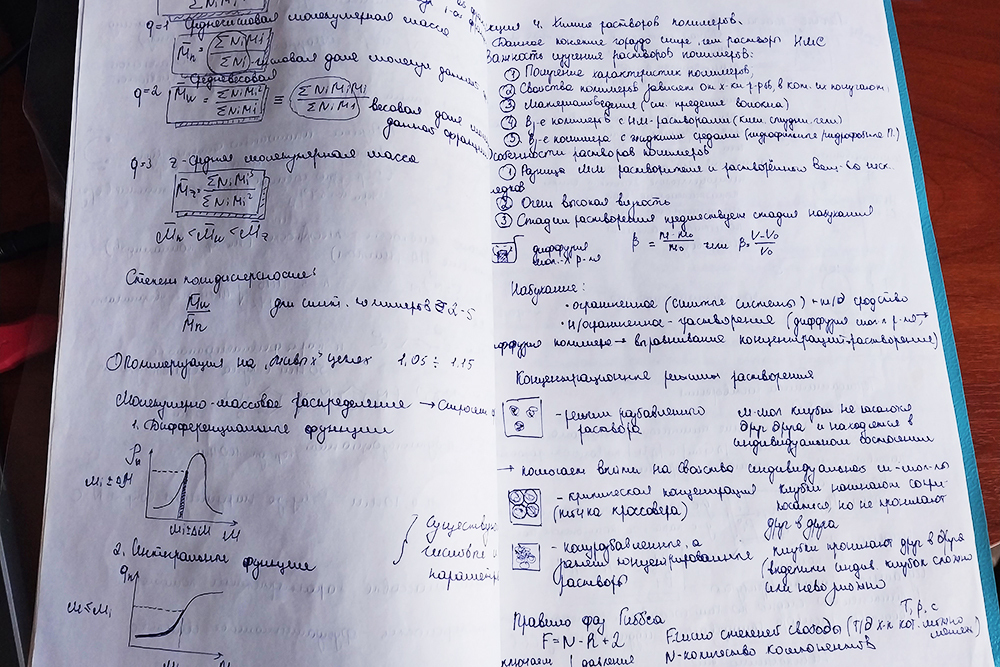 q=1 Среднечисловая молекулярная масса
M̄n = ΣNiMi / ΣNi числовая доля молекул данной
- Средневесовая
q=2 M̄w = ΣNiMi² / ΣNiMi ≡ ΣNiMiMi / ΣNiMi весовая доля
данной фракции
q=3 z-средняя молекулярная масса
M̄z = ΣNiMi³ / ΣNiMi²
M̄n < M̄w < M̄z
Степень полидисперсности:
M̄w / M̄n для синт. полимеров ≅ 2-5
Полимеризация на "живых" цепях 1,05 ÷ 1.15
Молекулярно-массовое распределение →
1. Дифференциальные функции
M
2. Интегральные функции
Существую
числовые
параметры
Химия растворов полимеров.
Данное понятие гораздо шире, чем растворы НМС
Важность изучения растворов полимеров:
① Получение характеристик полимеров,
② Свойства полимеров зависят от х-ки р-ров, в кот. их получают
③ Материаловедение (прядение волокна)
④ Вз-е полимеров с НМ-растворами (клеи, студни, гели)
⑤ Вз-е полимера с жидкими средами (гидрофильные гидрофобные П.)
Особенности растворов полимеров
① Разница ММ растворителя и растворённого Вещ-ва
② Очень высокая вязкость
③ Стадии растворения предшествует стадия набухания
диффузия
мол-л р-ля
β = m-m₀ / m₀ или β = V-V₀ / V₀
Набухание:
• ограниченное (сшитые системы) + т/д сродство
• н/ограниченное - растворения (диффузия мол-л р-ля →
диффузия полимера → выравнивание концентраций-растворение)
Концентрационные режимы растворения
- режим разбавленного
раствора
м-мол клубки не касаются
друг друга и находятся в
индивидуальном состоянии
→ помогает выйти на свойства индивидуальных
- критическая концентрация
(точка кроссовера)
клубки начинают сопри-
касаться, но не проникают
друг в друга
- полуразбавленные, а
затем концентрированные
растворы
клубки проникают друг в друга
(выделить индив. клубок сложно
или невозможно
Правило фаз Гиббса
T, p, c
F = N - P + 2
F-число степеней свободы (т/д х-к кот. можно
N-количество компонентов
1 давление